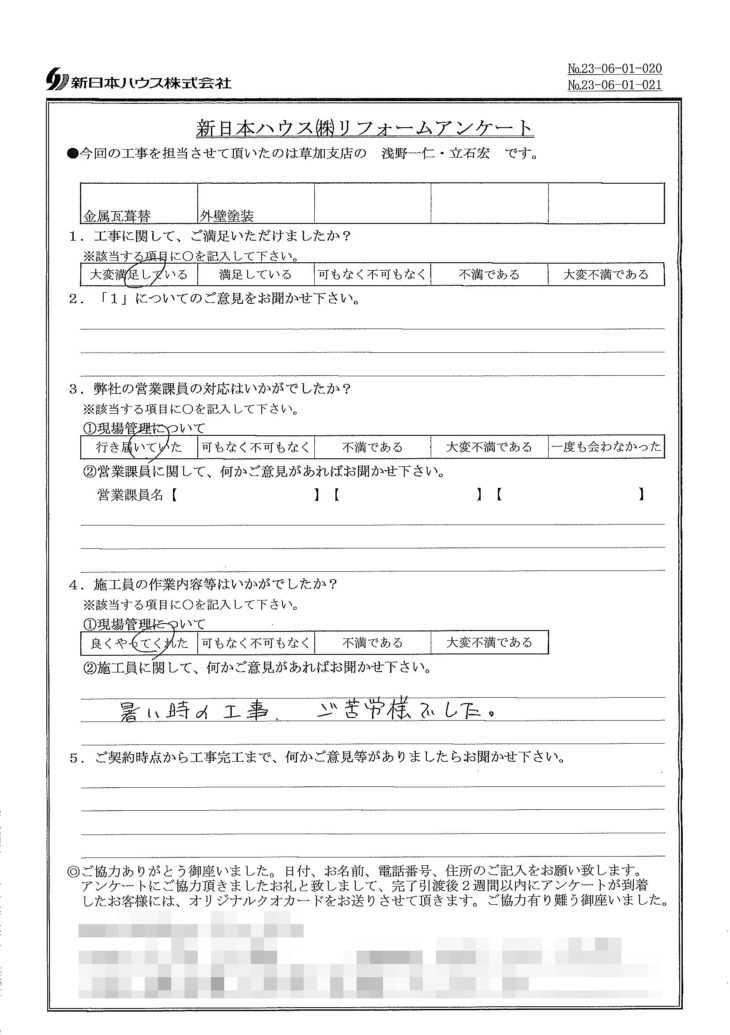 新日本ハウス株式会社
№23-06-01-020
№23-06-01-021
新日本ハウス㈱リフォームアンケート
●今回の工事を担当させて頂いたのは草加支店の　浅野一仁・立石宏　です。
金属瓦葺替　外壁塗装
１．工事に関して、ご満足いただけましたか？
※該当する項目に○を記入して下さい。
大変満足している　満足している　可もなく不可もなく　不満である　大変不満である
２．「１」についてのご意見をお聞かせ下さい。
３．弊社の営業課員の対応はいかがでしたか？
※該当する項目に○を記入して下さい。
①現場管理について
行き届いていた　可もなく不可もなく　不満である　大変不満である　一度も会わなかった
②営業課員に関して、何かご意見があればお聞かせ下さい。
営業課員名【　】【　】【　】
４．施工員の作業内容等はいかがでしたか？
※該当する項目に○を記入して下さい。
①現場管理について
良くやってくれた　可もなく不可もなく　不満である　大変不満である
②施工員に関して、何かご意見があればお聞かせ下さい。
暑い時の工事、ご苦労様でした。
５．ご契約時点から工事完工まで、何かご意見等がありましたらお聞かせ下さい。
◎ご協力ありがとう御座いました。日付、お名前、電話番号、住所のご記入をお願い致します。
アンケートにご協力頂きましたお礼と致しまして、完了引渡後２週間以内にアンケートが到着
したお客様には、オリジナルクオカードをお送りさせて頂きます。ご協力有り難う御座いました。